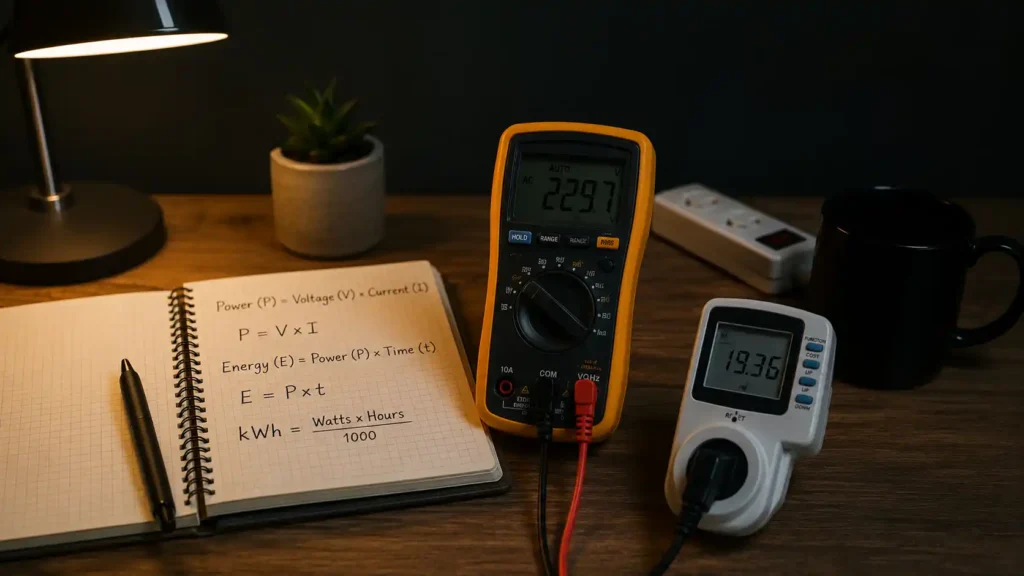 Power (P) = Voltage (V) × Current (I)
P = V × I
Energy (E) = Power (P) × Time (t)
E = P × t
kWh = Watts × Hours
1000
AUTO
AC 229.7
HOLD RANGE
10A COM VΩHz
19.36
FUNCTION
COST
UP
UP
DOWN